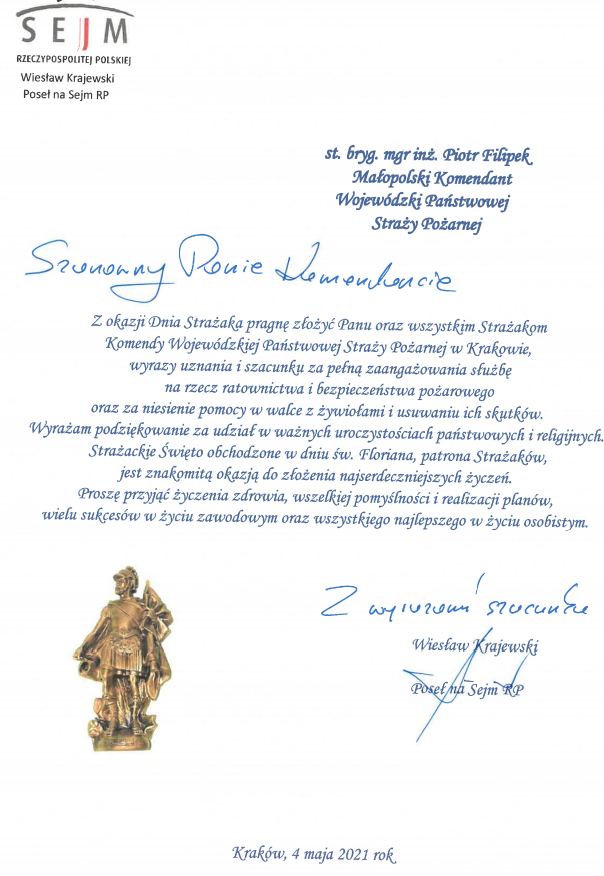 SEJM
RZECZYPOSPOLITEJ POLSKIEJ
Wiesław Krajewski
Poseł na Sejm RP
st. bryg. mgr inż. Piotr Filipek
Małopolski Komendant
Wojewódzki Państwowej
Straży Pożarnej
Szanowny Panie Komendancie
Z okazji Dnia Strażaka pragnę złożyć Panu oraz wszystkim Strażakom
Komendy Wojewódzkiej Państwowej Straży Pożarnej w Krakowie,
wyrazy uznania i szacunku za pełną zaangażowania służbę
na rzecz ratownictwa i bezpieczeństwa pożarowego
oraz za niesienie pomocy w walce z żywiołami i usuwaniu ich skutków.
Wyrażam podziękowanie za udział w ważnych uroczystościach państwowych i religijnych.
Strażackie Święto obchodzone w dniu św. Floriana, patrona Strażaków,
jest znakomitą okazją do złożenia najserdeczniejszych życzeń.
Proszę przyjąć życzenia zdrowia, wszelkiej pomyślności i realizacji planów,
wielu sukcesów w życiu zawodowym oraz wszystkiego najlepszego w życiu osobistym.
Z wyrazami szacunku
Wiesław Krajewski
Poseł na Sejm RP
Kraków, 4 maja 2021 rok